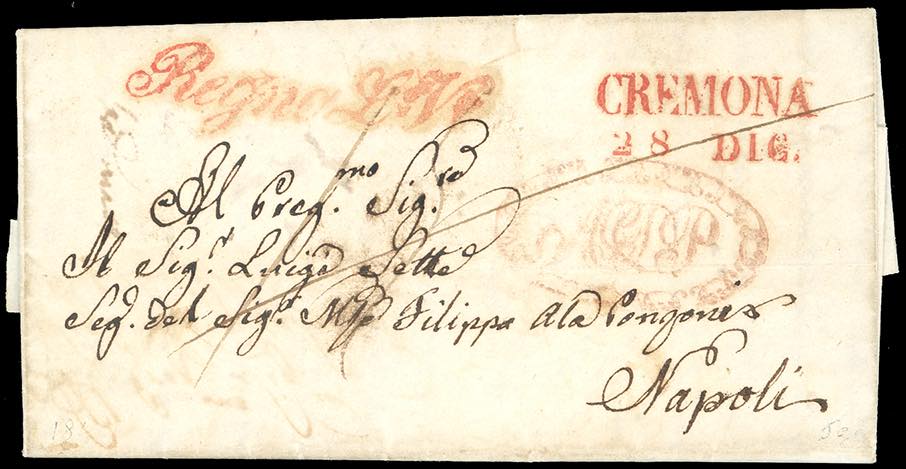 Regno L.V.
CREMONA
28 DIC.
Al Preg.mo Sig.re
Il Sig.r Luigi Sette
Seg. del Sig.r M.se Filippo Ala Ponzoni
Napoli